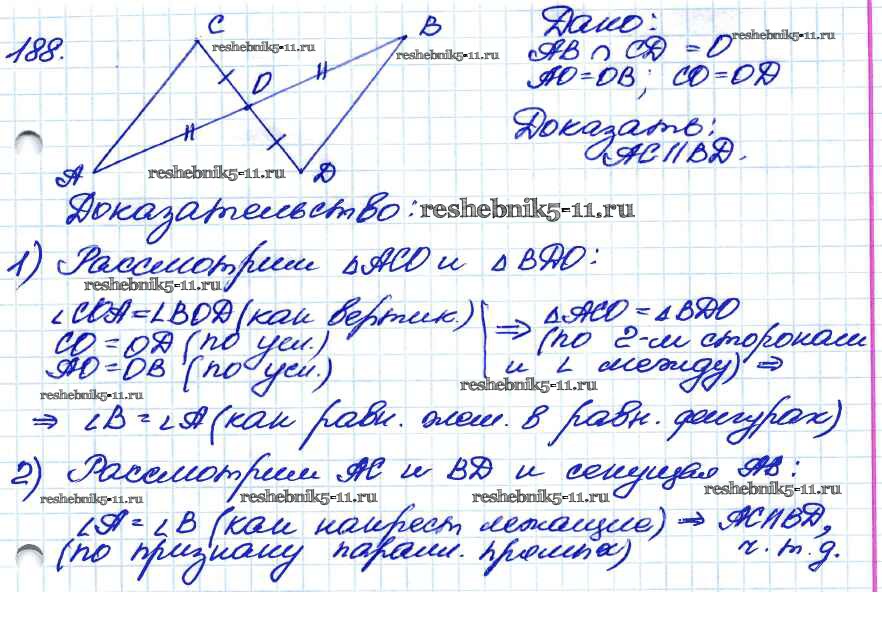 188.
C
B
O
A
D
reshebnik5-11.ru
reshebnik5-11.ru
reshebnik5-11.ru
Дано:
reshebnik5-11.ru
AB ∩ CD = O
AO = OB; CO = OD
Доказать:
AC || BD.
Доказательство:
reshebnik5-11.ru
1) Рассмотрим △ACO и △BDO:
reshebnik5-11.ru
∠COA = ∠BOD (как вертик.) ⇒ △ACO = △BDO
CO = OD (по усл.) (по 2-м сторонам
AO = OB (по усл.) и ∠ между) ⇒
reshebnik5-11.ru
reshebnik5-11.ru
⇒ ∠B = ∠A (как равн. элем. в равн. фигурах)
2) Рассмотрим AC и BD и секущая AB:
reshebnik5-11.ru
reshebnik5-11.ru
reshebnik5-11.ru
reshebnik5-11.ru
∠A = ∠B (как накрест лежащие) ⇒ AC || BD,
(по признаку паралл. прямых) ч.т.д.